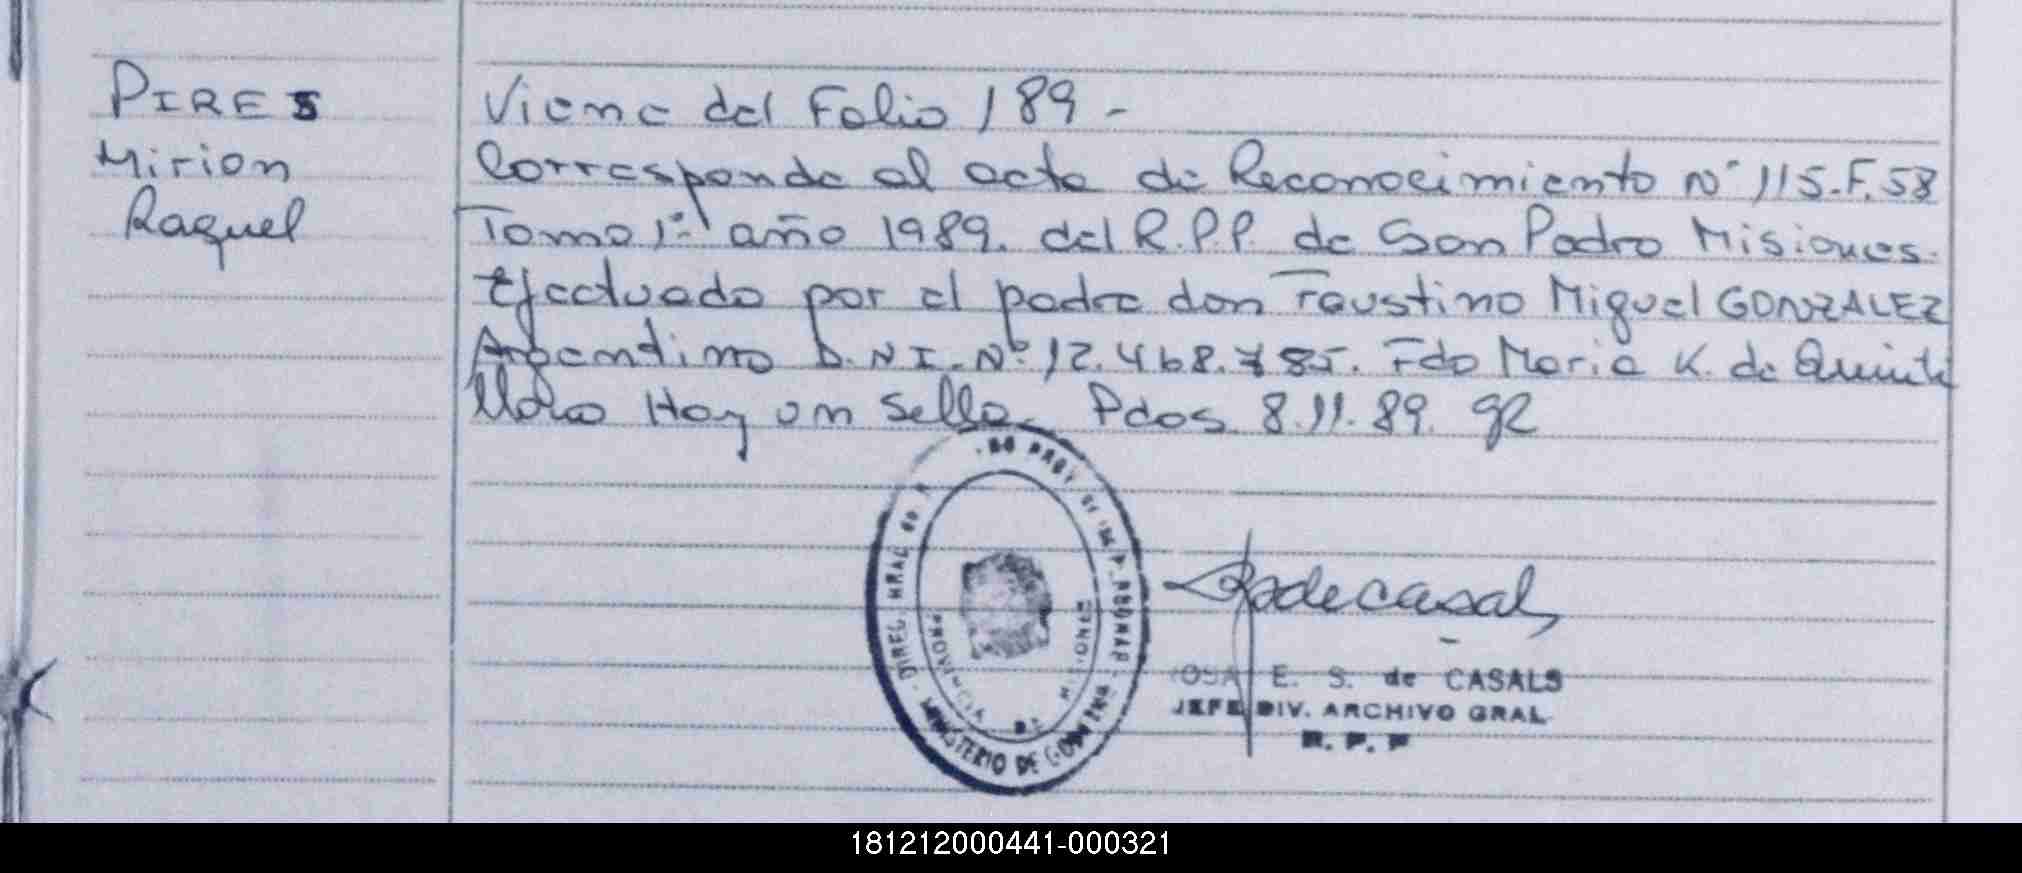 PIRES
Mirion
Raquel
Viene del Folio 189 -
Corresponde al acta de Reconocimiento Nº 115.F.58
Tomo 1º año 1989. del R.P.P. de San Pedro Misiones.
Efectuado por el padre don Faustino Miguel GONZALEZ
Argentino D.N.I. Nº 12.468.785. Fdo Maria K. de Quinte
Hay un sello. Pdos 8.11.89.
DIREC. GRAL de
MINISTERIO DE
PROVINCIA DE MISIONES
OSA E. S. de CASALS
JEFE DIV. ARCHIVO GRAL.
R. P. P
181212000441-000321